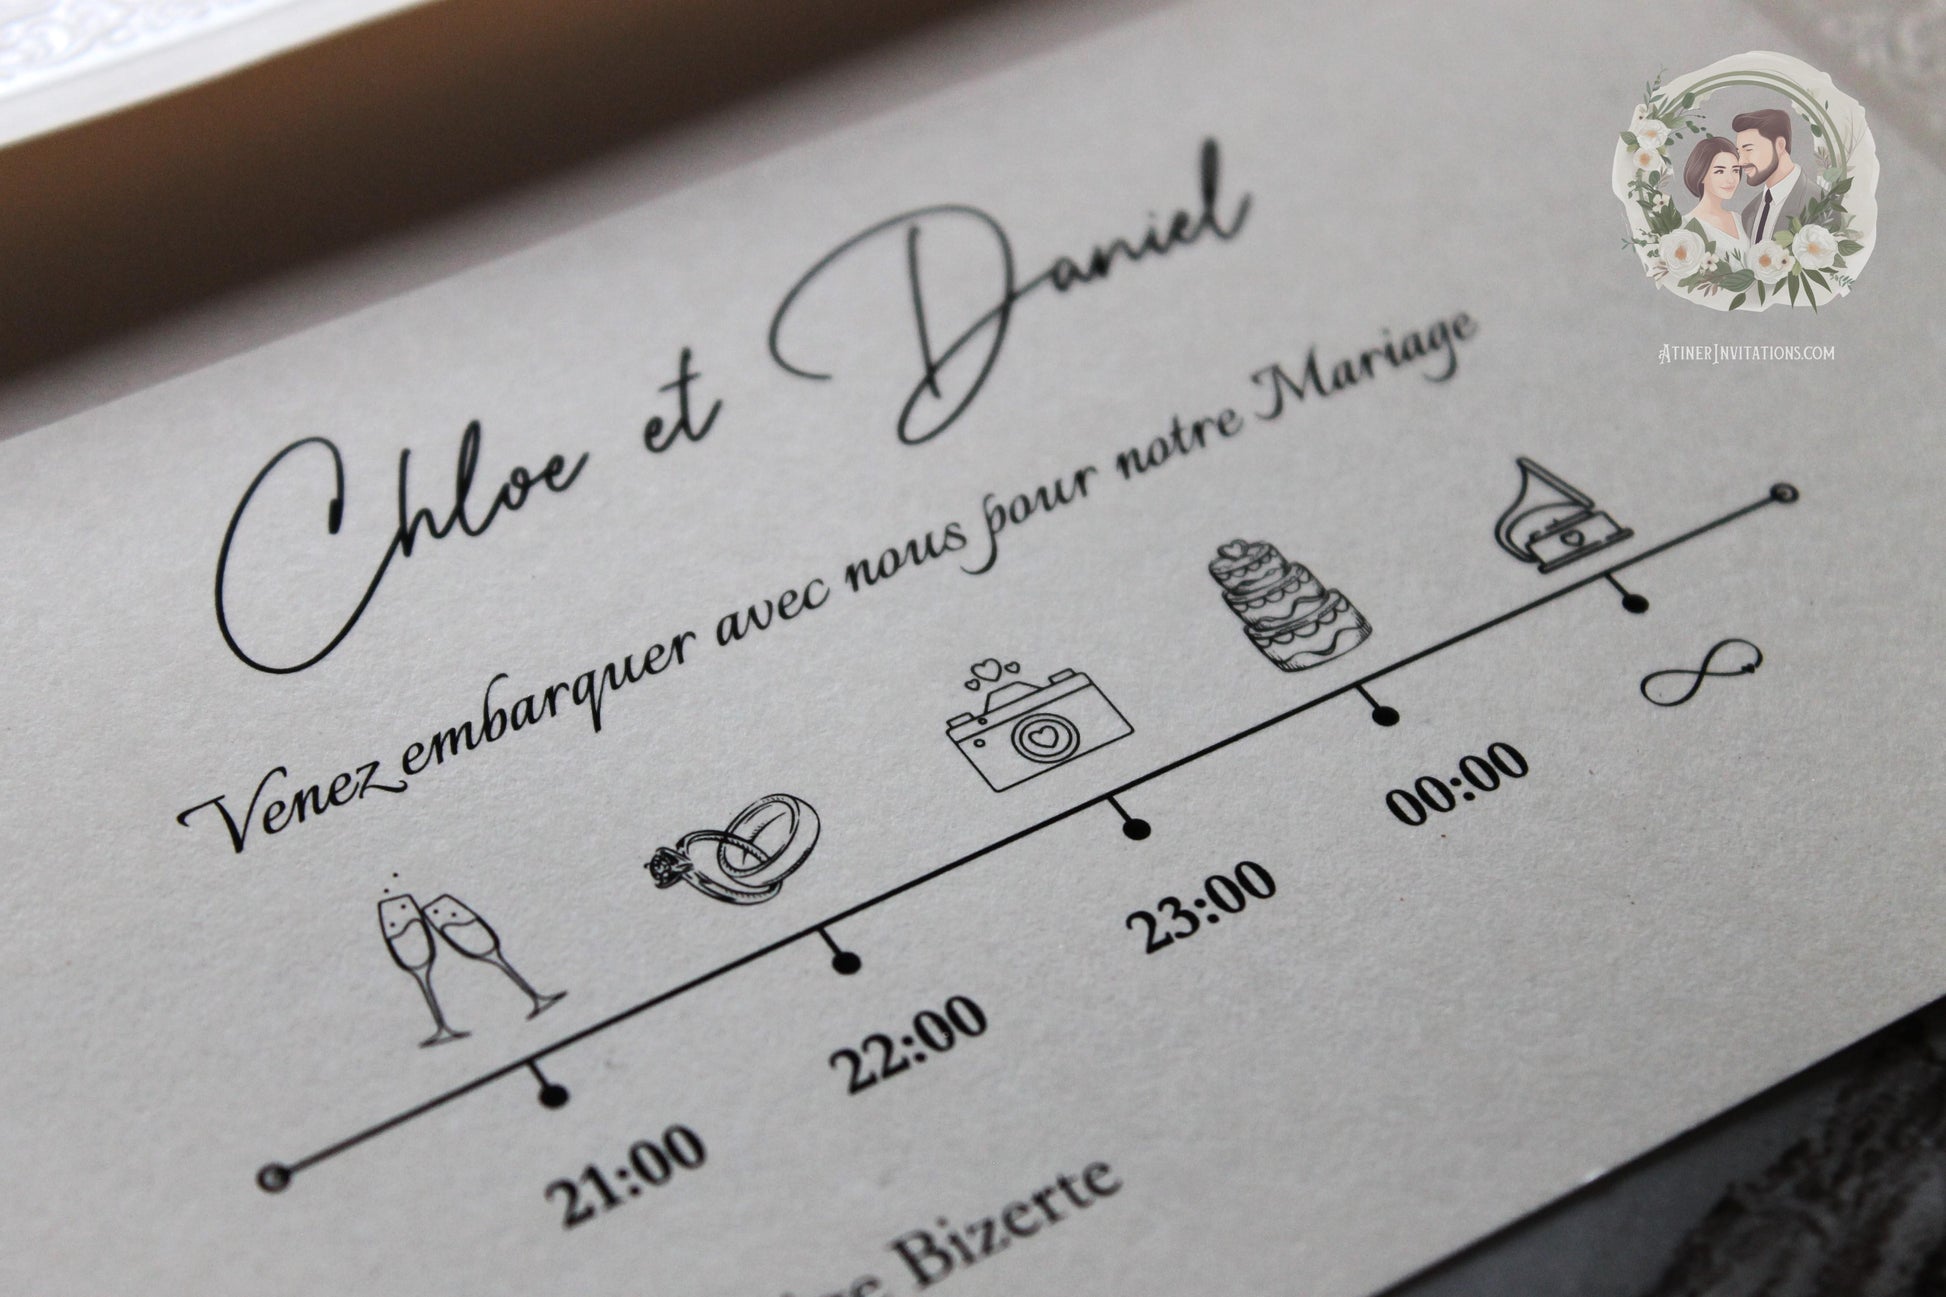 Chloe et Daniel
Venez embarquer avec nous pour notre Mariage
21:00 22:00 23:00 00:00
Bizerte
AtinerInvitations.com